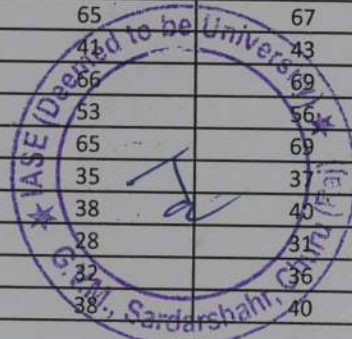 65 67
41 43
66 69
53 56
65 69
35 37
38 40
28 31
32 36
38 40
IASE (Deemed to be University)
G.V.M., Sardarshahr, Churu (Raj.)